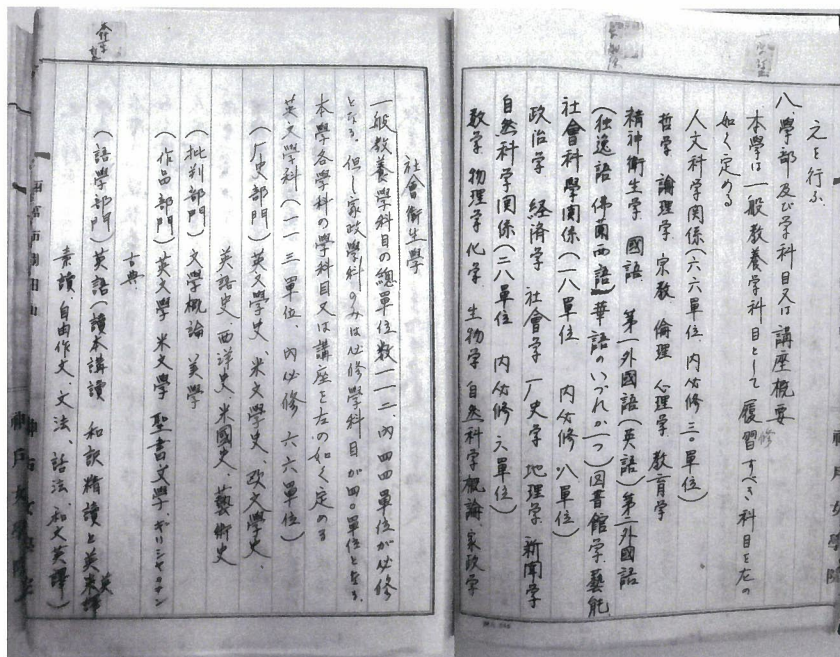 之を行ふ、
八 學部及び学科目又は講座概要
本學は一般教養学科目として履習すべき科目を左の
修
如く定める
人文科学関係(六六單位、内必修 三〇單位)
哲学 論理学 宗教 倫理 心理学 教育学
精神衛生学 國語 第一外國語(英語)第二外國語
(独逸語 佛蘭西語 華語のいづれか一つ)図書館学、藝能
社會科學関係(一八單位 内必修 八單位)
政治学 経済学 社會学 歴史学 地理学 新聞学
自然科学関係(二八單位 内必修 六單位)
数学 物理学 化学 生物学 自然科学概論、家政学
社會衛生學
一般教養學科目の總單位数一一二、内四四單位が必修
となる、但し家政學科のみは必修學科目が四〇單位となる、
本學各學科の學科目又は講座を左の如く定める
英文學科(一一三單位、内必修 六六單位)
(歴史部門)英文學史、米文學史、欧文學史、
英語史、西洋史、米國史、藝術史
(批判部門)文學概論、美學
(作品部門)英文學、米文學、聖書文學、ギリシャラテン
古典
(語學部門)英語(讀本講讀 和訳精讀と英
素讀、自由作文、文法、話法、和文英譯)
神戸女學院